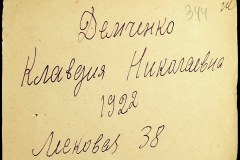 344
Демченко
Клавдия Николаевна
1922
Лесковая 38